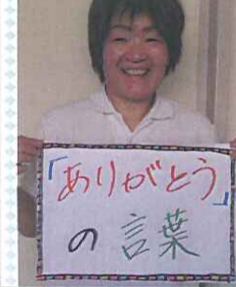 「ありがとう」
の言葉